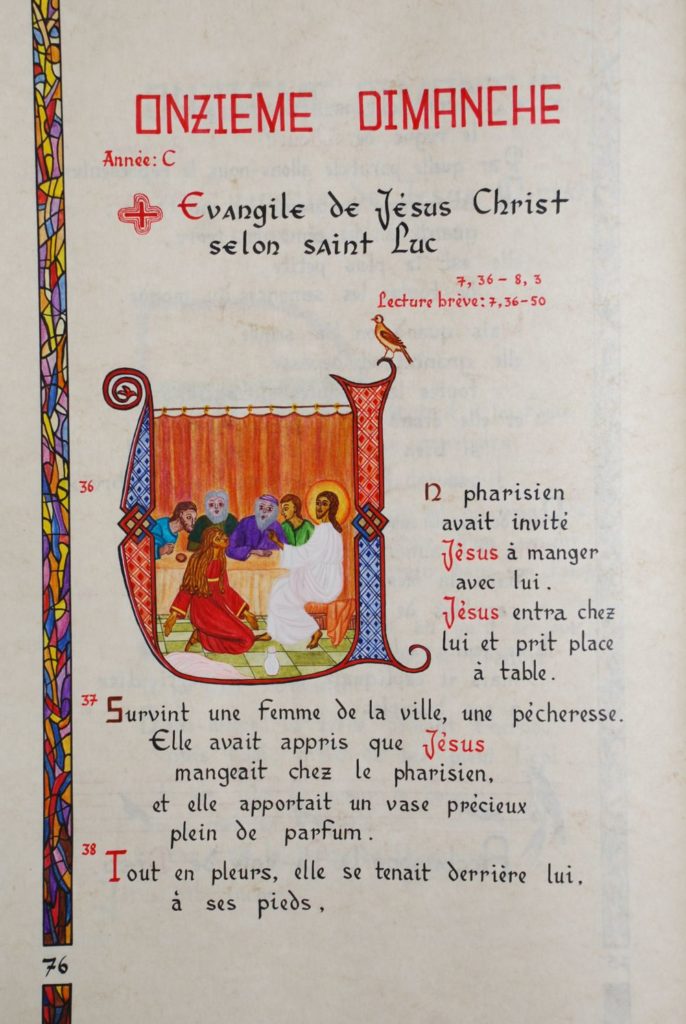 ONZIEME DIMANCHE
Année: C
Evangile de Jésus Christ
selon saint Luc
7, 36 - 8, 3
Lecture brève: 7, 36-50
36
UN pharisien
avait invité
Jésus à manger
avec lui.
Jésus entra chez
lui et prit place
à table.
37
Survint une femme de la ville, une pécheresse.
Elle avait appris que Jésus
mangeait chez le pharisien,
et elle apportait un vase précieux
plein de parfum.
38
Tout en pleurs, elle se tenait derrière lui,
à ses pieds,
76